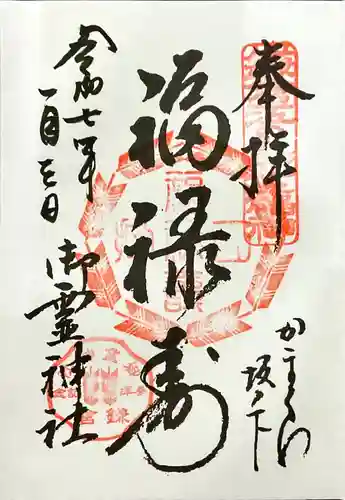 奉拝
かまくら
坂ノ下
福禄寿
御霊神社
令和七年
一月三日